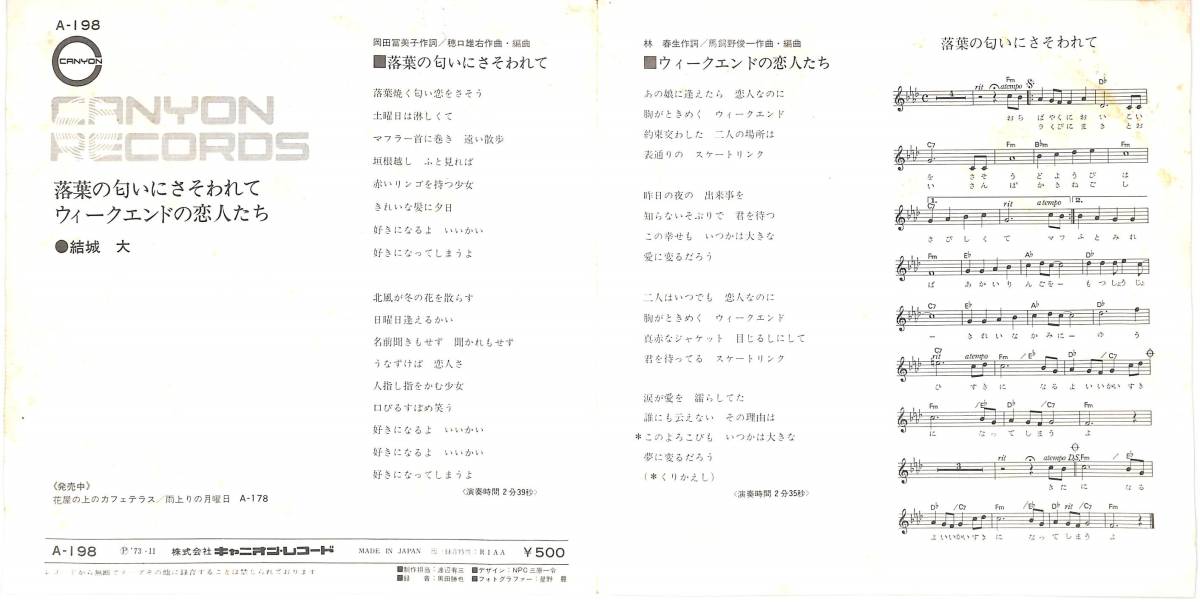 A-198
CANYON
CANYON
RECORDS
落葉の匂いにさそわれて
ウィークエンドの恋人たち
●結城 大
《発売中》
花屋の上のカフェテラス／雨上りの月曜日 A-178
岡田冨美子作詞／穂口雄右作曲・編曲
■落葉の匂いにさそわれて
落葉焼く匂い恋をさそう
土曜日は淋しくて
マフラー首に巻き 遠い散歩
垣根越し ふと見れば
赤いリンゴを持つ少女
きれいな髪に夕日
好きになるよ いいかい
好きになってしまうよ
北風が冬の花を散らす
日曜日逢えるかい
名前聞きもせず 聞かれもせず
うなずけば 恋人さ
人指し指をかむ少女
口びるすぼめ笑う
好きになるよ いいかい
好きになるよ いいかい
好きになってしまうよ
〈演奏時間2分39秒〉
A-198 Ⓟ'73・11 株式会社キャニオン・レコード MADE IN JAPAN R I A A ¥500
レコードから無断でテープその他に録音することは禁じられております
■制作担当：渡辺有三 ■デザイン：NPC三原一令
■録 音：黒田勝也 ■フォトグラファー：星野
林 春生作詞／馬飼野俊一作曲・編曲
■ウィークエンドの恋人たち
あの娘に逢えたら 恋人なのに
胸がときめく ウィークエンド
約束交わした 二人の場所は
表通りの スケートリンク
昨日の夜の 出来事を
知らないそぶりで 君を待つ
この幸せも いつかは大きな
愛に変るだろう
二人はいつでも 恋人なのに
胸がときめく ウィークエンド
真赤なジャケット 目じるしにして
君を待ってる スケートリンク
涙が愛を 濡らしてた
誰にも云えない その理由は
*このよろこびも いつかは大きな
夢に変るだろう
(*くりかえし)
〈演奏時間2分35秒〉
落葉の匂いにさそわれて
4 rit atempo Fm D♭
おち ばやくにおい こい
うくびにまき とお
C7 Fm B♭m Fm
を さそう どようび は
い さんぽ かきねご し
1. C7 rit atempo 2.
さびしくて マフ ふとみれ
Fm E♭ A♭ D♭
ば あかいりんごを― もつしょうじょ
C7 E♭ A♭ D♭
― きれいなかみに― ゆう
C7 rit atempo Fm /E♭ D♭ /C7
ひ すきに なるよいいかいすき
Fm /E♭ D♭ /C7 Fm
に なってしまう よ
3 rit atempo D.S. Fm
きたに なる
D♭ /C7 Fm /E♭ D♭ /C7 Fm
よいいかいすき に なってしまう よ